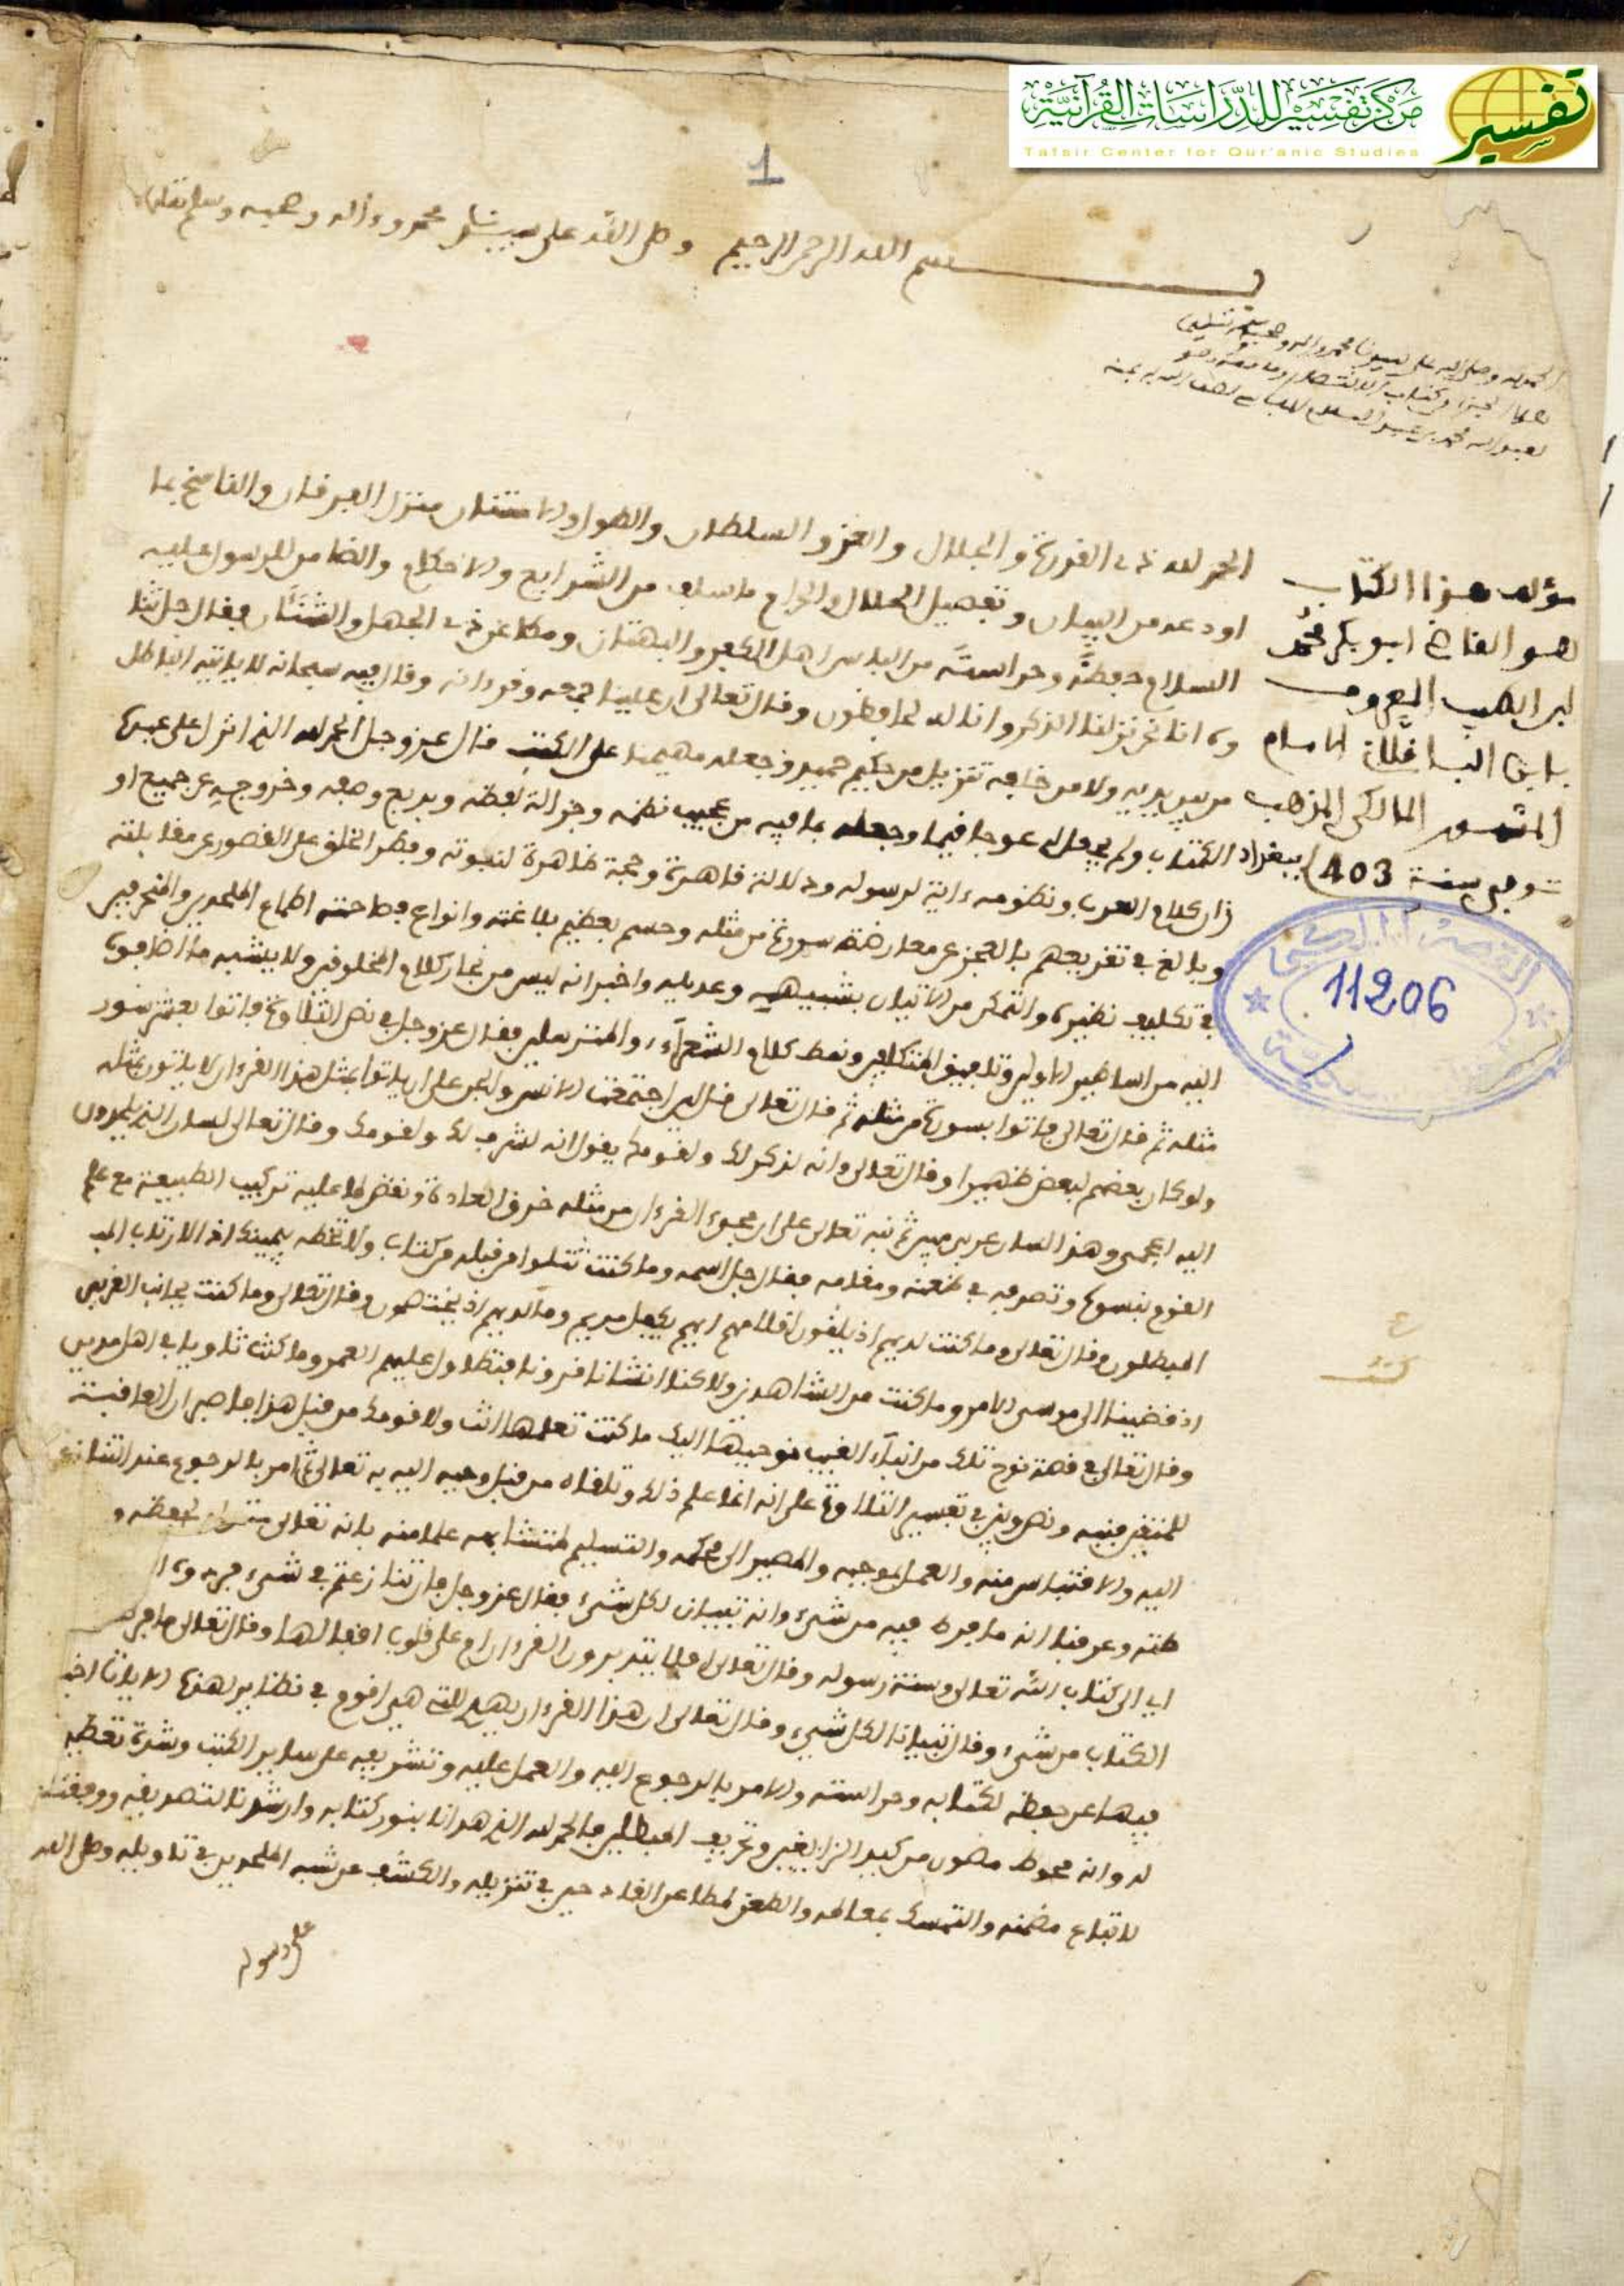 مركز تفسير للدراسات القرآنية
Tafsir Center for Qur'anic Studies
تفسير
1
بسم الله الرحمن الرحيم وصلى الله على سيدنا محمد وءاله وصحبه وسلم تسليما
الحمد لله وصلى الله على سيدنا محمد واله وصحبه وسلم تسليما
مؤلف هذا الكتاب
هو القاضي ابو بكر محمد
ابن الطيب المعروف
بابن الباقلاني الامام
المشهور المالكي المذهب
توفي سنة 403 ببغداد
11206
الحمد لله ذي القدرة والجلال والعز والسلطان والطول والامتنان منزل الفرقان والناسخ بما
اودعه من البيان وتفصيل الحلال والحرام ما سلف من الشرايع والاحكام والضامن للرسول عليه
السلام حفظه وحراسته من الباس اهل الكفر والبهتان ومطاعن ذوي الجهل والشنئان فقال جل ثنا
وه انا نحن نزلنا الذكر وانا له لحافظون وقال تعالى ان علينا جمعه وقرءانه وقال فيه سبحانه لا ياتيه الباطل
من بين يديه ولا من خلفه تنزيل من حكيم حميد وجعله مهيمنا على الكتب فقال عز وجل الحمد لله الذي انزل على عبده
الكتاب ولم يجعل له عوجا قيما وجعله بما فيه من عجيب نظمه وجزالة لفظه وبديع وصفه وخروجه عن جميع او
زان كلام العرب ونظومه ءاية لرسوله ودلالة قاهرة وحجة ظاهرة لنبوته وفطر الخلق على القصور عن مقابلته
وبالغ في تقريعهم بالعجز عن معارضة سورة من مثله وحسم بعظيم بلاغته وانواع فصاحته اطماع الملحدين والمنحرفين
في تكليف نظيره والتمكن من الاتيان بشبيهه وعديله واخبر انه ليس من نجار كلام المخلوقين ولا يشبه ما اضافوه
اليه من اساطير الاولين وتلفيق المتكلفين ونمط كلام الشعراء والمترسلين فقال عز وجل في نص التلاوة فاتوا بعشر سور
مثله ثم قال تعالى فاتوا بسورة من مثله ثم قال تعالى قل لئن اجتمعت الانس والجن على ان ياتوا بمثل هذا القرءان لا ياتون بمثله
ولو كان بعضهم لبعض ظهيرا وقال تعالى وانه لذكر لك ولقومك يقول انه لشرف لك ولقومك وقال تعالى لسان الذي يلحدون
اليه اعجمي وهذا لسان عربي مبين ثم نبه تعالى على ان مجيء القرءان من مثله خرق العادة ونقض لما عليه تركيب الطبيعة مع علم
القوم بنسوه وتصرفه في ظعنه ومقامه فقال جل اسمه وما كنت تتلوا من قبله من كتاب ولا تخطه بيمينك اذا لارتاب المبـ
المبطلون وقال تعالى وما كنت لديهم اذ يلقون اقلامهم ايهم يكفل مريم وما كنت لديهم اذ يختصمون وقال تعالى وما كنت بجانب الغربي
اذ قضينا الى موسى الامر وما كنت من الشاهدين ولاكنا انشانا قرونا فتطاول عليهم العمر وما كنت ثاويا في اهل مدين
وقال تعالى في قصة نوح تلك من انباء الغيب نوحيها اليك ما كنت تعلمها انت ولا قومك من قبل هذا فاصبر ان العاقبة
للمتقين فنبه ونص ونبه في تفسير التلاوة على انه انما علم ذلك وتلقاه من قبل وحيه اليه به تعالى ثم امر بالرجوع عند التنازع
اليه والاقتباس منه والعمل بموجبه والمصير الى محكمه والتسليم لمتشابهه علما منه بانه تعالى متولي لحفظه و
وعرفنا انه ما فرط فيه من شيء وانه تبيان لكل شيء فقال عز وجل فان تنازعتم في شيء فردوه ا
اي الى كتاب الله تعالى وسنة رسوله وقال تعالى افلا يتدبرون القرءان ام على قلوب اقفالها وقال تعالى ما فرطنا
الكتاب من شيء وقال تبيانا لكل شيء وقال تعالى ان هذا القرءان يهدي للتي هي اقوم في نظاير لهذه الايات اخبر
فيها عن حفظه لكتابه وحراسته والامر بالرجوع اليه والعمل عليه وتشريفه على ساير الكتب وشدة تعظيمه
له وانه محوط مصون من كيد الزايغين وتحريف المبطلين فالحمد لله الذي هدانا بنور كتابه وارشدنا لتصديقه ووفقنا
لاتباع مضمنه والتمسك بمعالمه والطعن لمطاعن القادحين في تنزيله والكشف عن شبه الملحدين في تاويله وصلى الله
على رسوله